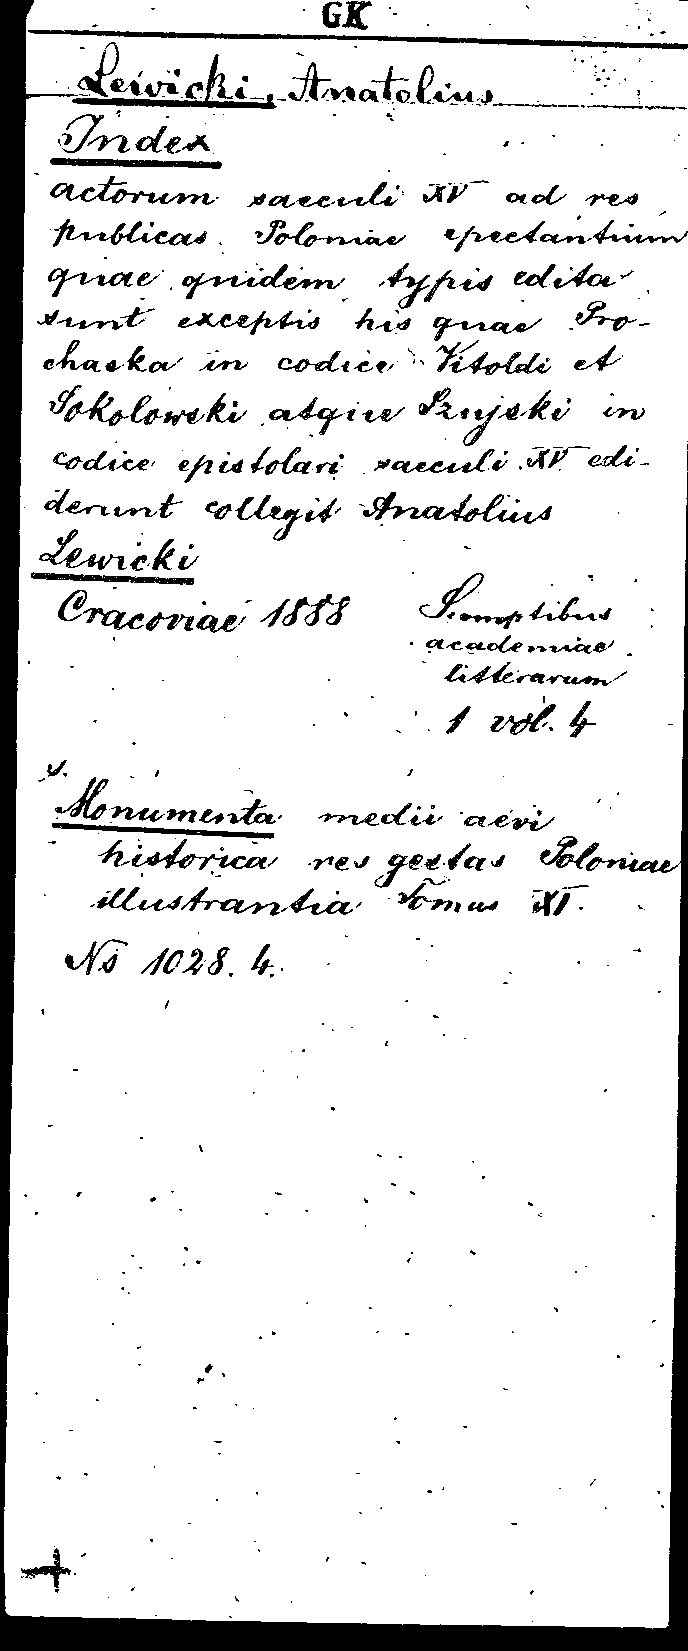 GK
Lewicki, Anatolius
Index
actorum saeculi XV ad res
publicas Poloniae spectantium
quae quidem typis edita
sunt exceptis his quae Pro-
chaska in codice Vitoldi et
Sokolowski atque Szujski in
codice epistolari saeculi XV edi-
derunt collegit Anatolius
Lewicki
Cracoviae 1888
Sumptibus
academiae
litterarum
1 vol. 4
s.
Monumenta medii aevi
historica res gestas Poloniae
illustrantia Tomus XI.
Ns 1028. 4.